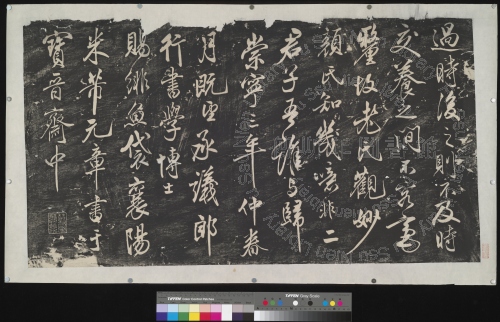 過時後之則不及時
交養之間不容毫
釐故老氏觀妙
顏氏知幾噫非二
君子吾誰與歸
崇寧三年仲春
月既望承議郎
行書學博士
賜緋魚袋襄陽
米芾元章書于
寶晉齋中